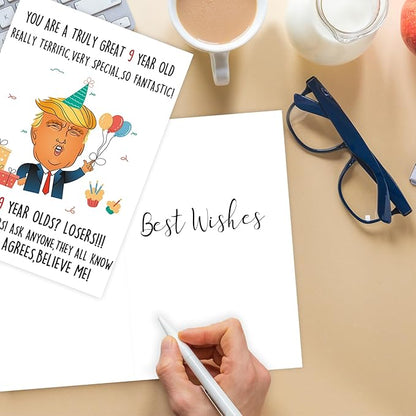 YOU ARE A TRULY GREAT 9 YEAR OLD
REALLY TERRIFIC, VERY SPECIAL, SO FANTASTIC!
9 YEAR OLDS? LOSERS!!!
ASK ANYONE, THEY ALL KNOW
AGREES, BELIEVE ME!
Best Wishes